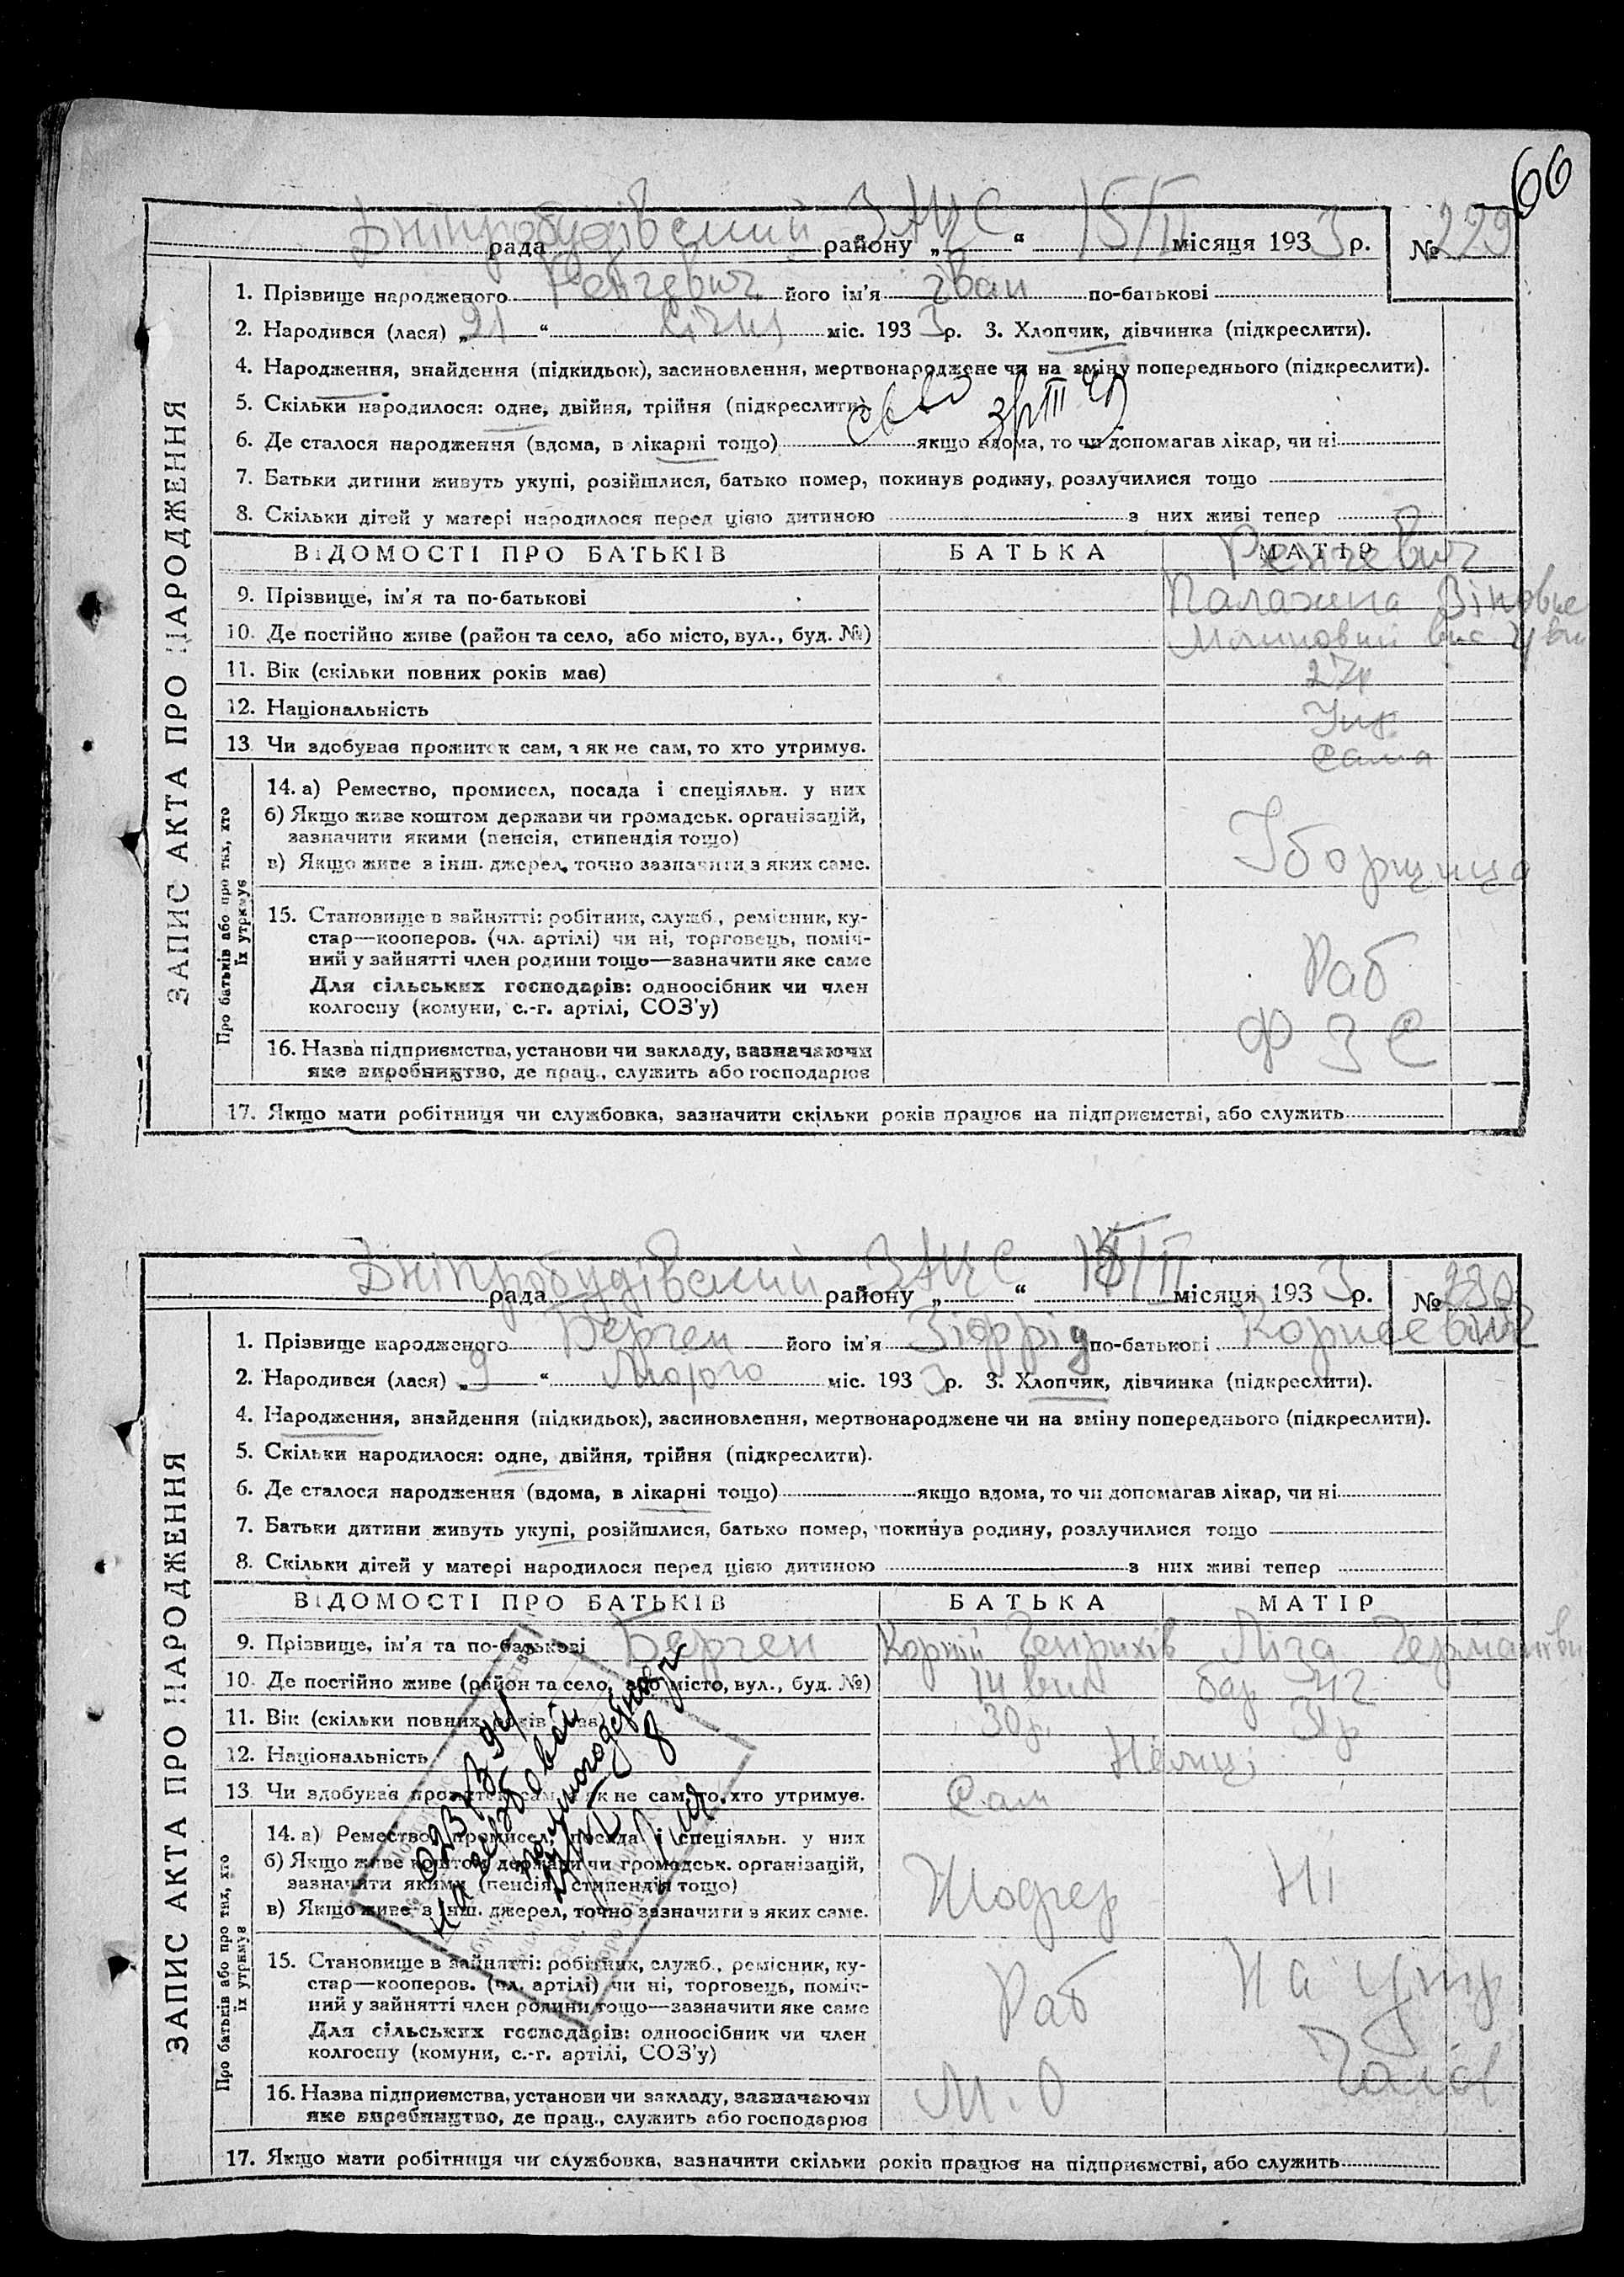 66
Дніпробудівський ЗАЦС 15/II
рада району „ “ місяця 1933 р. № 229
1. Прізвище народженого Ренчевич його ім'я Іван по-батькові
2. Народився (лася) „21 “ Січня міс. 1933 р. 3. Хлопчик, дівчинка (підкреслити).
4. Народження, знайдення (підкидьок), засиновлення, мертвонароджене чи на зміну попереднього (підкреслити).
5. Скільки народилося: одне, двійня, трійня (підкреслити).
6. Де сталося народження (вдома, в лікарні тощо) якщо вдома, то чи допомагав лікар, чи ні
7. Батьки дитини живуть укупі, розійшлися, батько помер, покинув родину, розлучилися тощо
8. Скільки дітей у матері народилося перед цією дитиною з них живі тепер
ЗАПИС АКТА ПРО НАРОДЖЕННЯ
ВІДОМОСТІ ПРО БАТЬКІВ БАТЬКА МАТІР
Ренчевич
9. Прізвище, ім'я та по-батькові Палажка
10. Де постійно живе (район та село, або місто, вул., буд. №)
11. Вік (скільки повних років має) 27р
12. Національність Укр
13. Чи здобуває прожиток сам, а як не сам, то хто утримує. Сама
Про батьків або про тих, хто їх утримує
14. а) Ремество, промисел, посада і спеціяльн. у них
б) Якщо живе коштом держави чи громадськ. організацій,
зазначити якими (пенсія, стипендія тощо) Уборщица
в) Якщо живе з інш. джерел, точно зазначити з яких саме.
15. Становище в зайнятті: робітник, служб., ремісник, ку-
стар—кооперов. (чл. артілі) чи ні, торговець, поміч-
ний у зайнятті член родини тощо—зазначити яке саме Раб
Для сільських господарів: одноосібник чи член
колгоспу (комуни, с.-г. артілі, СОЗ'у)
16. Назва підприємства, установи чи закладу, зазначаючи ФЗС
яке виробництво, де прац., служить або господарює
17. Якщо мати робітниця чи службовка, зазначити скільки років працює на підприємстві, або служить
Дніпробудівський ЗАЦС
рада району „ “ місяця 1933 р. № 230
1. Прізвище народженого Берген його ім'я Зіфрід по-батькові Корнеевич
2. Народився (лася) „9 “ Лютого міс. 1933 р. 3. Хлопчик, дівчинка (підкреслити).
4. Народження, знайдення (підкидьок), засиновлення, мертвонароджене чи на зміну попереднього (підкреслити).
5. Скільки народилося: одне, двійня, трійня (підкреслити).
6. Де сталося народження (вдома, в лікарні тощо) якщо вдома, то чи допомагав лікар, чи ні
7. Батьки дитини живуть укупі, розійшлися, батько помер, покинув родину, розлучилися тощо
8. Скільки дітей у матері народилося перед цією дитиною з них живі тепер
ЗАПИС АКТА ПРО НАРОДЖЕННЯ
ВІДОМОСТІ ПРО БАТЬКІВ БАТЬКА МАТІР
9. Прізвище, ім'я та по-батькові Берген Корній Генрихів Ліза Германівн
10. Де постійно живе (район та село, або місто, вул., буд. №) 14 вил бар 42
11. Вік (скільки повних років має) 30р. 31р
12. Національність Німці
13. Чи здобуває прожиток сам, а як не сам, то хто утримує. Сам
Про батьків або про тих, хто їх утримує
14. а) Ремество, промисел, посада і спеціяльн. у них
б) Якщо живе коштом держави чи громадськ. організацій,
зазначити якими (пенсія, стипендія тощо) Шофер Ні
в) Якщо живе з інш. джерел, точно зазначити з яких саме.
15. Становище в зайнятті: робітник, служб., ремісник, ку-
стар—кооперов. (чл. артілі) чи ні, торговець, поміч-
ний у зайнятті член родини тощо—зазначити яке саме Раб На утр
Для сільських господарів: одноосібник чи член
колгоспу (комуни, с.-г. артілі, СОЗ'у)
16. Назва підприємства, установи чи закладу, зазначаючи М.О
яке виробництво, де прац., служить або господарює
17. Якщо мати робітниця чи службовка, зазначити скільки років працює на підприємстві, або служить